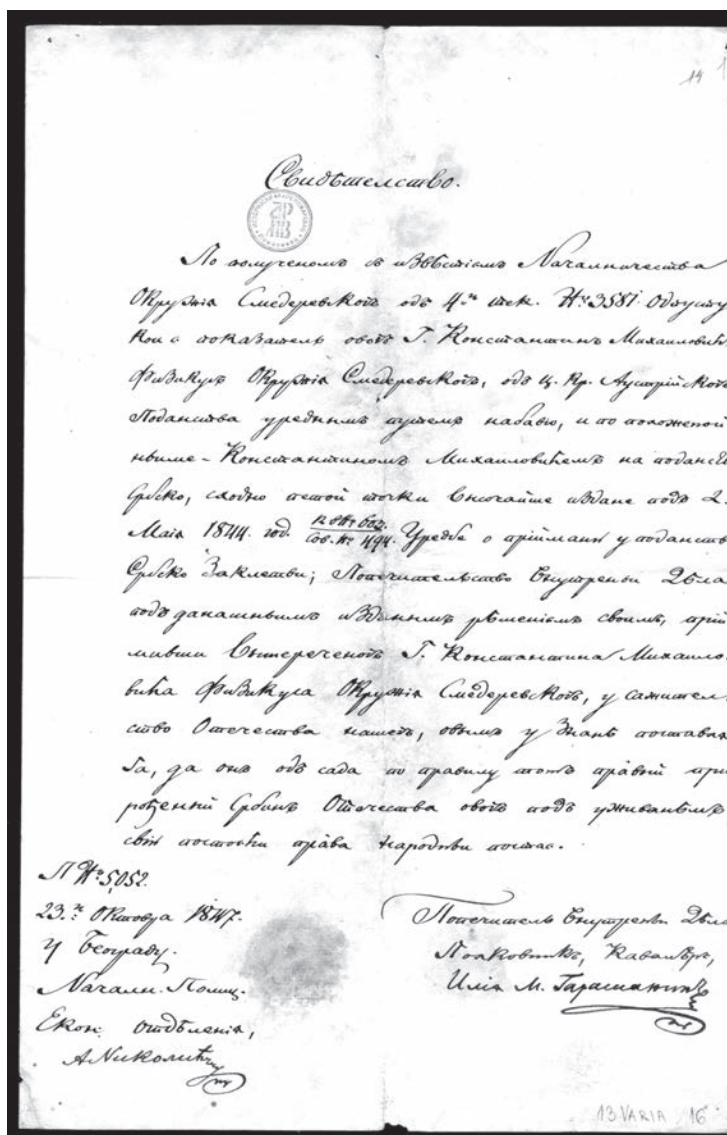 14 1
Свидѣтелство.
По полученомъ съ извѣстіемъ Началничества
Окружія Смедеревскогъ одъ 4.га тек. № 3581. отпусту
кои є показатель овогъ Г. Константинъ Михаиловићъ
Физикусъ Окружія Смедеревскогъ, одъ ц. кр. Аустрійскогъ
Поданства уреднымъ путемъ набавіо, и по положеной
ньиме - Константиномъ Михаиловићемъ на поданст
србско, сходно петой точки Височайше издане подъ 2.
Маіа 1844. год. В № 602. Сов. № 494. Уредбе о пріиманю у поданств
Србско Заклетви; Попечительство Внутрены Дѣла
подъ данашньимъ издатымъ рѣшеніемъ своимъ, прій
мивши Вышереченогъ Г. Константина Михаило
вића Физикуса Окружія Смедеревскогъ, у сажител
ство Отечества нашегъ, овымъ у знанѣ поставля
га, да онъ одъ сада по правилу тогъ правый при
рођеный Србинъ Отечества овогъ подъ уживанѣмъ
свію постоећи права народны постає.
П № 5,052.
23.га Октобра 1847.
У Београду.
Началн. Полиц.
Екон. отдѣленія,
А Николићъ
Попечитель Внутрены Дѣла
Полковникъ, Кавалѣръ,
Илія М. Гарашанинъ
13 VARIA 16